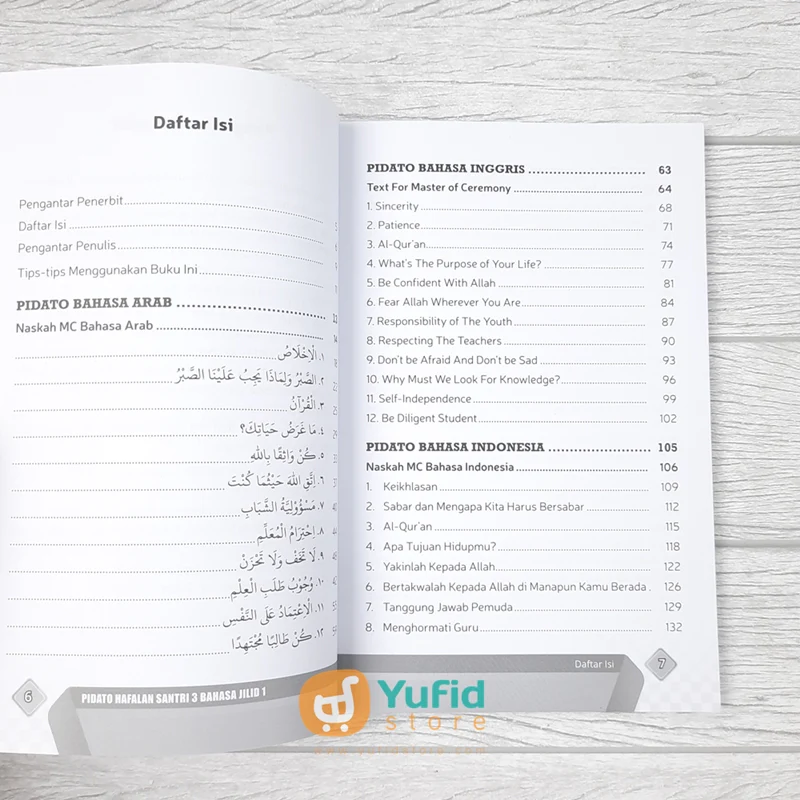 Daftar Isi
Pengantar Penerbit
Daftar Isi
Pengantar Penulis
Tips-tips Menggunakan Buku Ini
PIDATO BAHASA ARAB
Naskah MC Bahasa Arab
١. الْإِخْلَاصُ
٢. الصَّبْرُ وَلِمَاذَا يَجِبُ عَلَيْنَا الصَّبْرُ
٣. الْقُرْآنُ
٤. مَا غَرَضُ حَيَاتِكَ؟
٥. كُنْ وَاثِقًا بِاللهِ
٦. اِتَّقِ اللهَ حَيْثُمَا كُنْتَ
٧. مَسْؤُوْلِيَّةُ الشَّبَابِ
٨. اِحْتِرَامُ الْمُعَلِّمِ
٩. لَا تَخَفْ وَلَا تَحْزَنْ
١٠. وُجُوْبُ طَلَبِ الْعِلْمِ
١١. الْاِعْتِمَادُ عَلَى النَّفْسِ
١٢. كُنْ طَالِبًا مُجْتَهِدًا
6 PIDATO HAFALAN SANTRI 3 BAHASA JILID 1
PIDATO BAHASA INGGRIS 63
Text For Master of Ceremony 64
1. Sincerity 68
2. Patience 71
3. Al-Qur'an 74
4. What's The Purpose of Your Life? 77
5. Be Confident With Allah 81
6. Fear Allah Wherever You Are 84
7. Responsibility of The Youth 87
8. Respecting The Teachers 90
9. Don't be Afraid And Don't be Sad 93
10. Why Must We Look For Knowledge? 96
11. Self-Independence 99
12. Be Diligent Student 102
PIDATO BAHASA INDONESIA 105
Naskah MC Bahasa Indonesia 106
1. Keikhlasan 109
2. Sabar dan Mengapa Kita Harus Bersabar 112
3. Al-Qur'an 115
4. Apa Tujuan Hidupmu? 118
5. Yakinlah Kepada Allah 122
6. Bertakwalah Kepada Allah di Manapun Kamu Berada . 126
7. Tanggung Jawab Pemuda 129
8. Menghormati Guru 132
Daftar Isi 7
Yufid
store